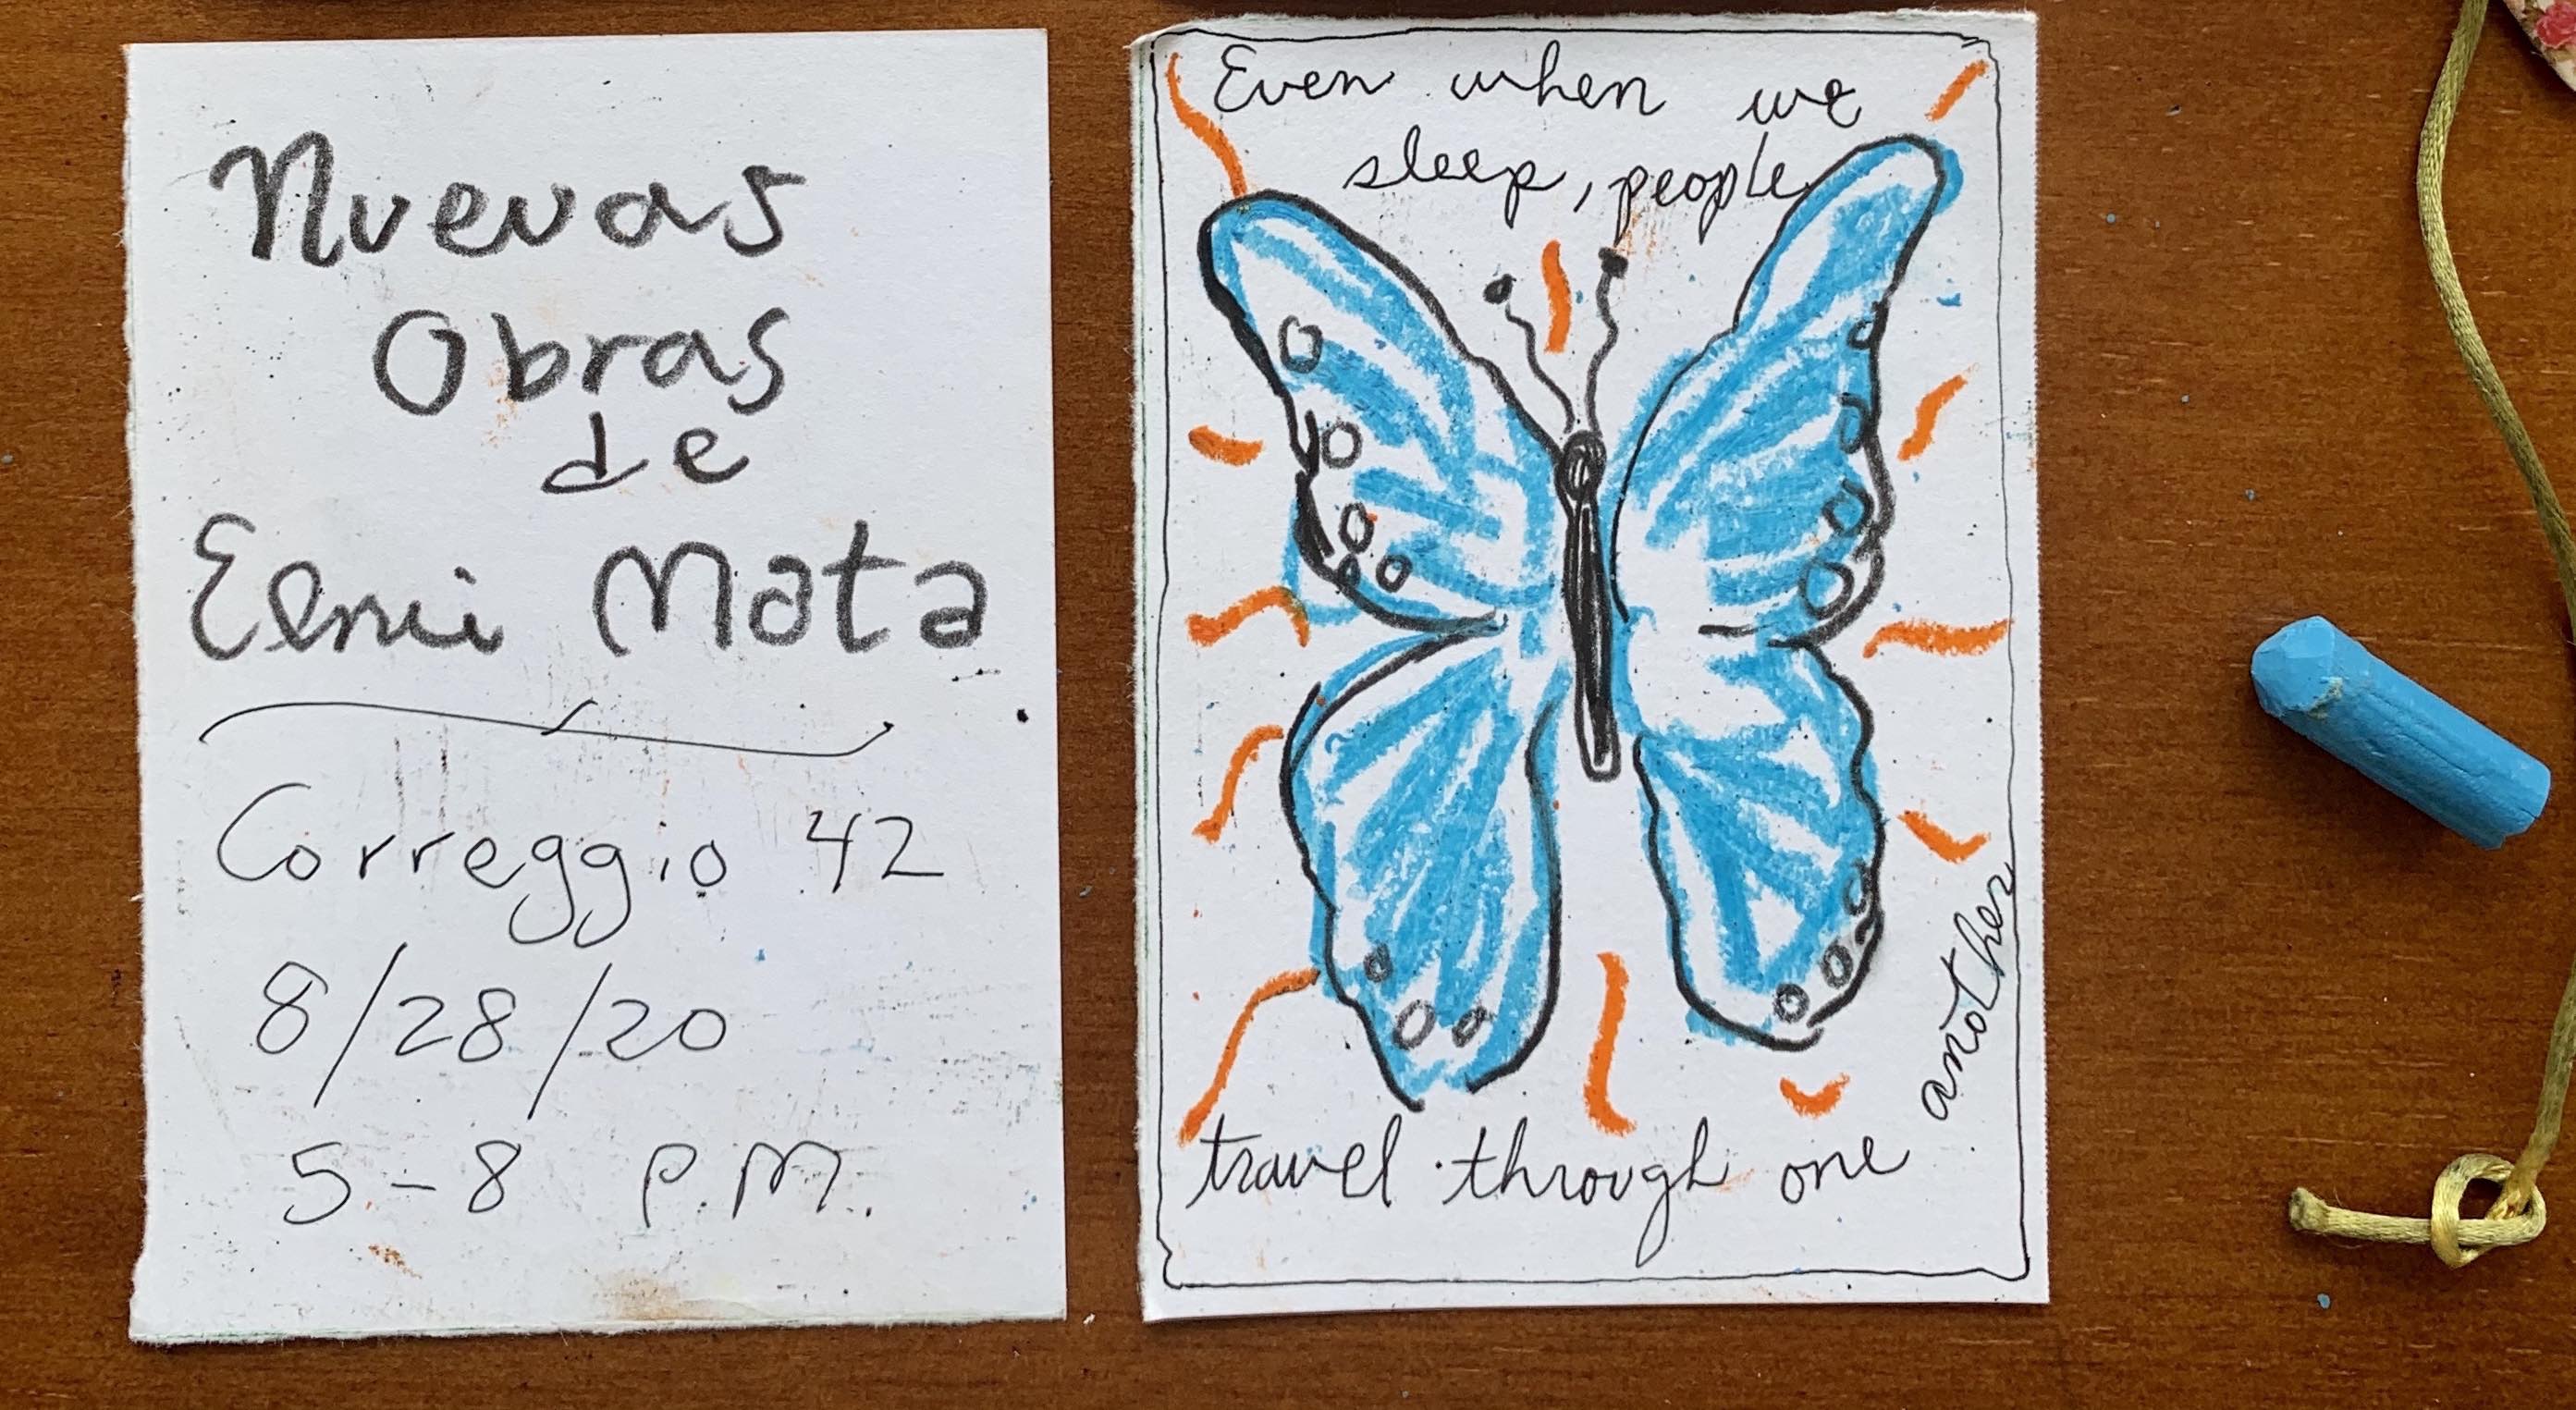 Nuevas
Obras
de
Elmi Mata
Correggio 42
8/28/20
5-8 P.M.
Even when we
sleep, people
travel through one
another